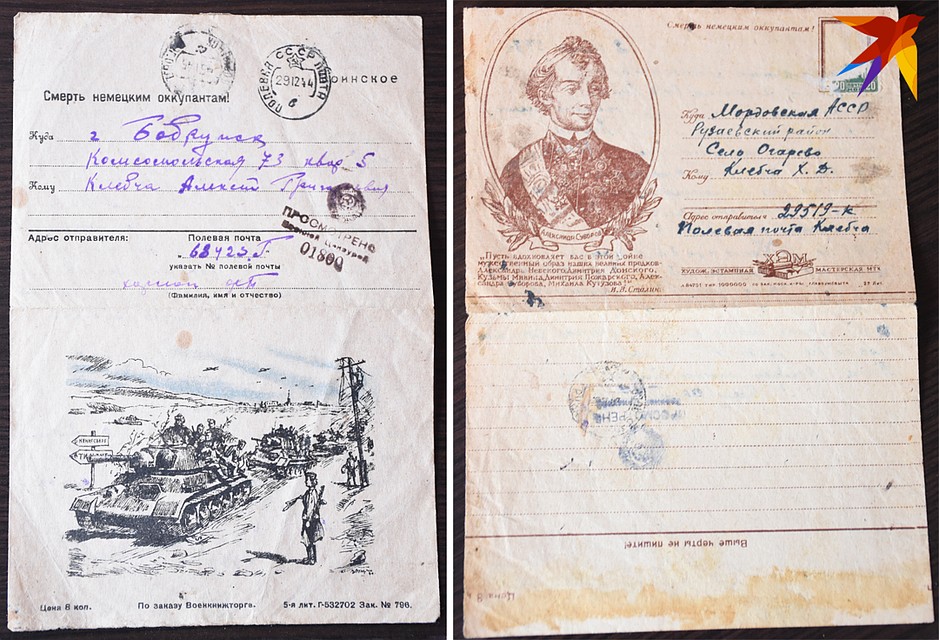 СССР ПОЧТА
29 12 44
ПОЛЕВАЯ
в
Смерть немецким оккупантам!
Куда г. Бобруйск
Комсомольская 73 квар 5
Кому Клебча Алексею
ПРОСМОТРЕНО
Военной Цензурой
01800
Адрес отправителя:
Полевая почта
68423
указать № полевой почты
(Фамилия, имя и отчество)
Цена 6 коп.
По заказу Военкнижторга.
5-я лит. Г-532702 Зак. № 796.
Смерть немецким оккупантам!
20
20
Куда Мордовская АССР
Рузаевский район
Село Огарево
Кому Клебча Х. Д.
Адрес отправителя 29519-к
Полевая почта Клебча
АЛЕКСАНДР СУВОРОВ
„Пусть вдохновляет вас в этой войне
мужественный образ наших великих предков—
Александра Невского, Димитрия Донского,
Кузьмы Минина, Димитрия Пожарского, Алек-
сандра Суворова, Михаила Кутузова!"
И. В. Сталин.
ХУДОЖ. ЭСТАМПНАЯ
МАСТЕРСКАЯ
ПРОСМОТРЕНО
Выше черты не пишите!